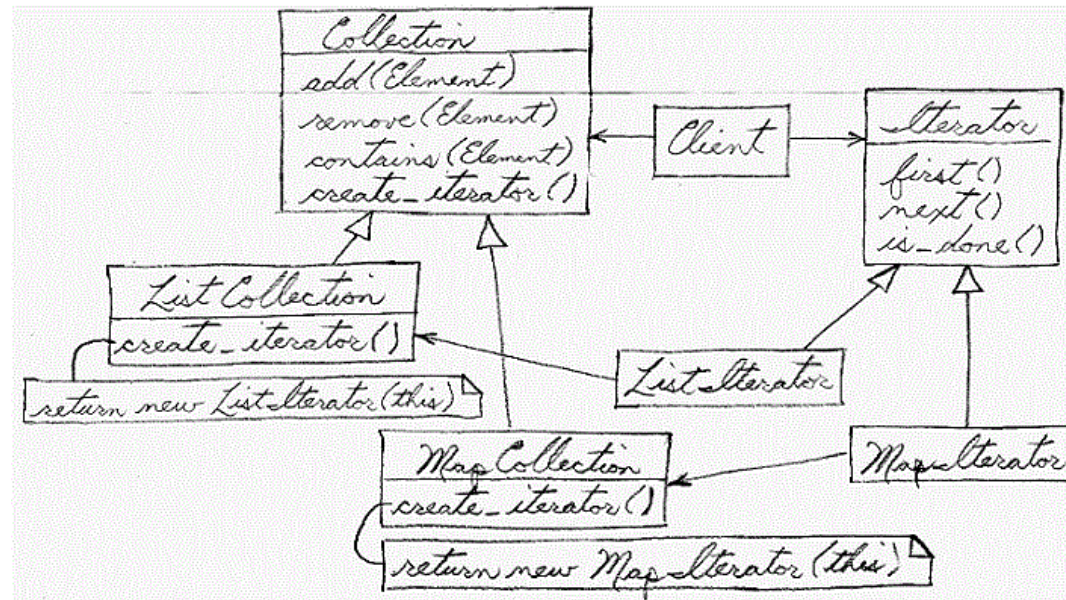 Collection
add(Element)
remove(Element)
contains(Element)
create_iterator()
Client
Iterator
first()
next()
is_done()
ListCollection
create_iterator()
return new ListIterator(this)
ListIterator
MapCollection
create_iterator()
return new MapIterator(this)
MapIterator